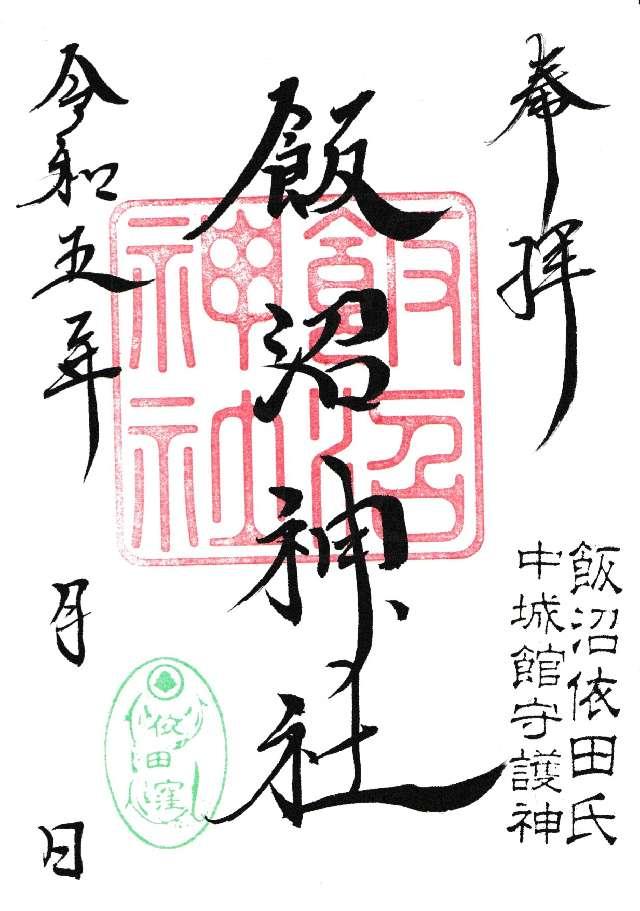 奉拝
飯沼依田氏
中城館守護神
飯沼神社
飯沼
神社
令和五年
月
日
依
田
窪